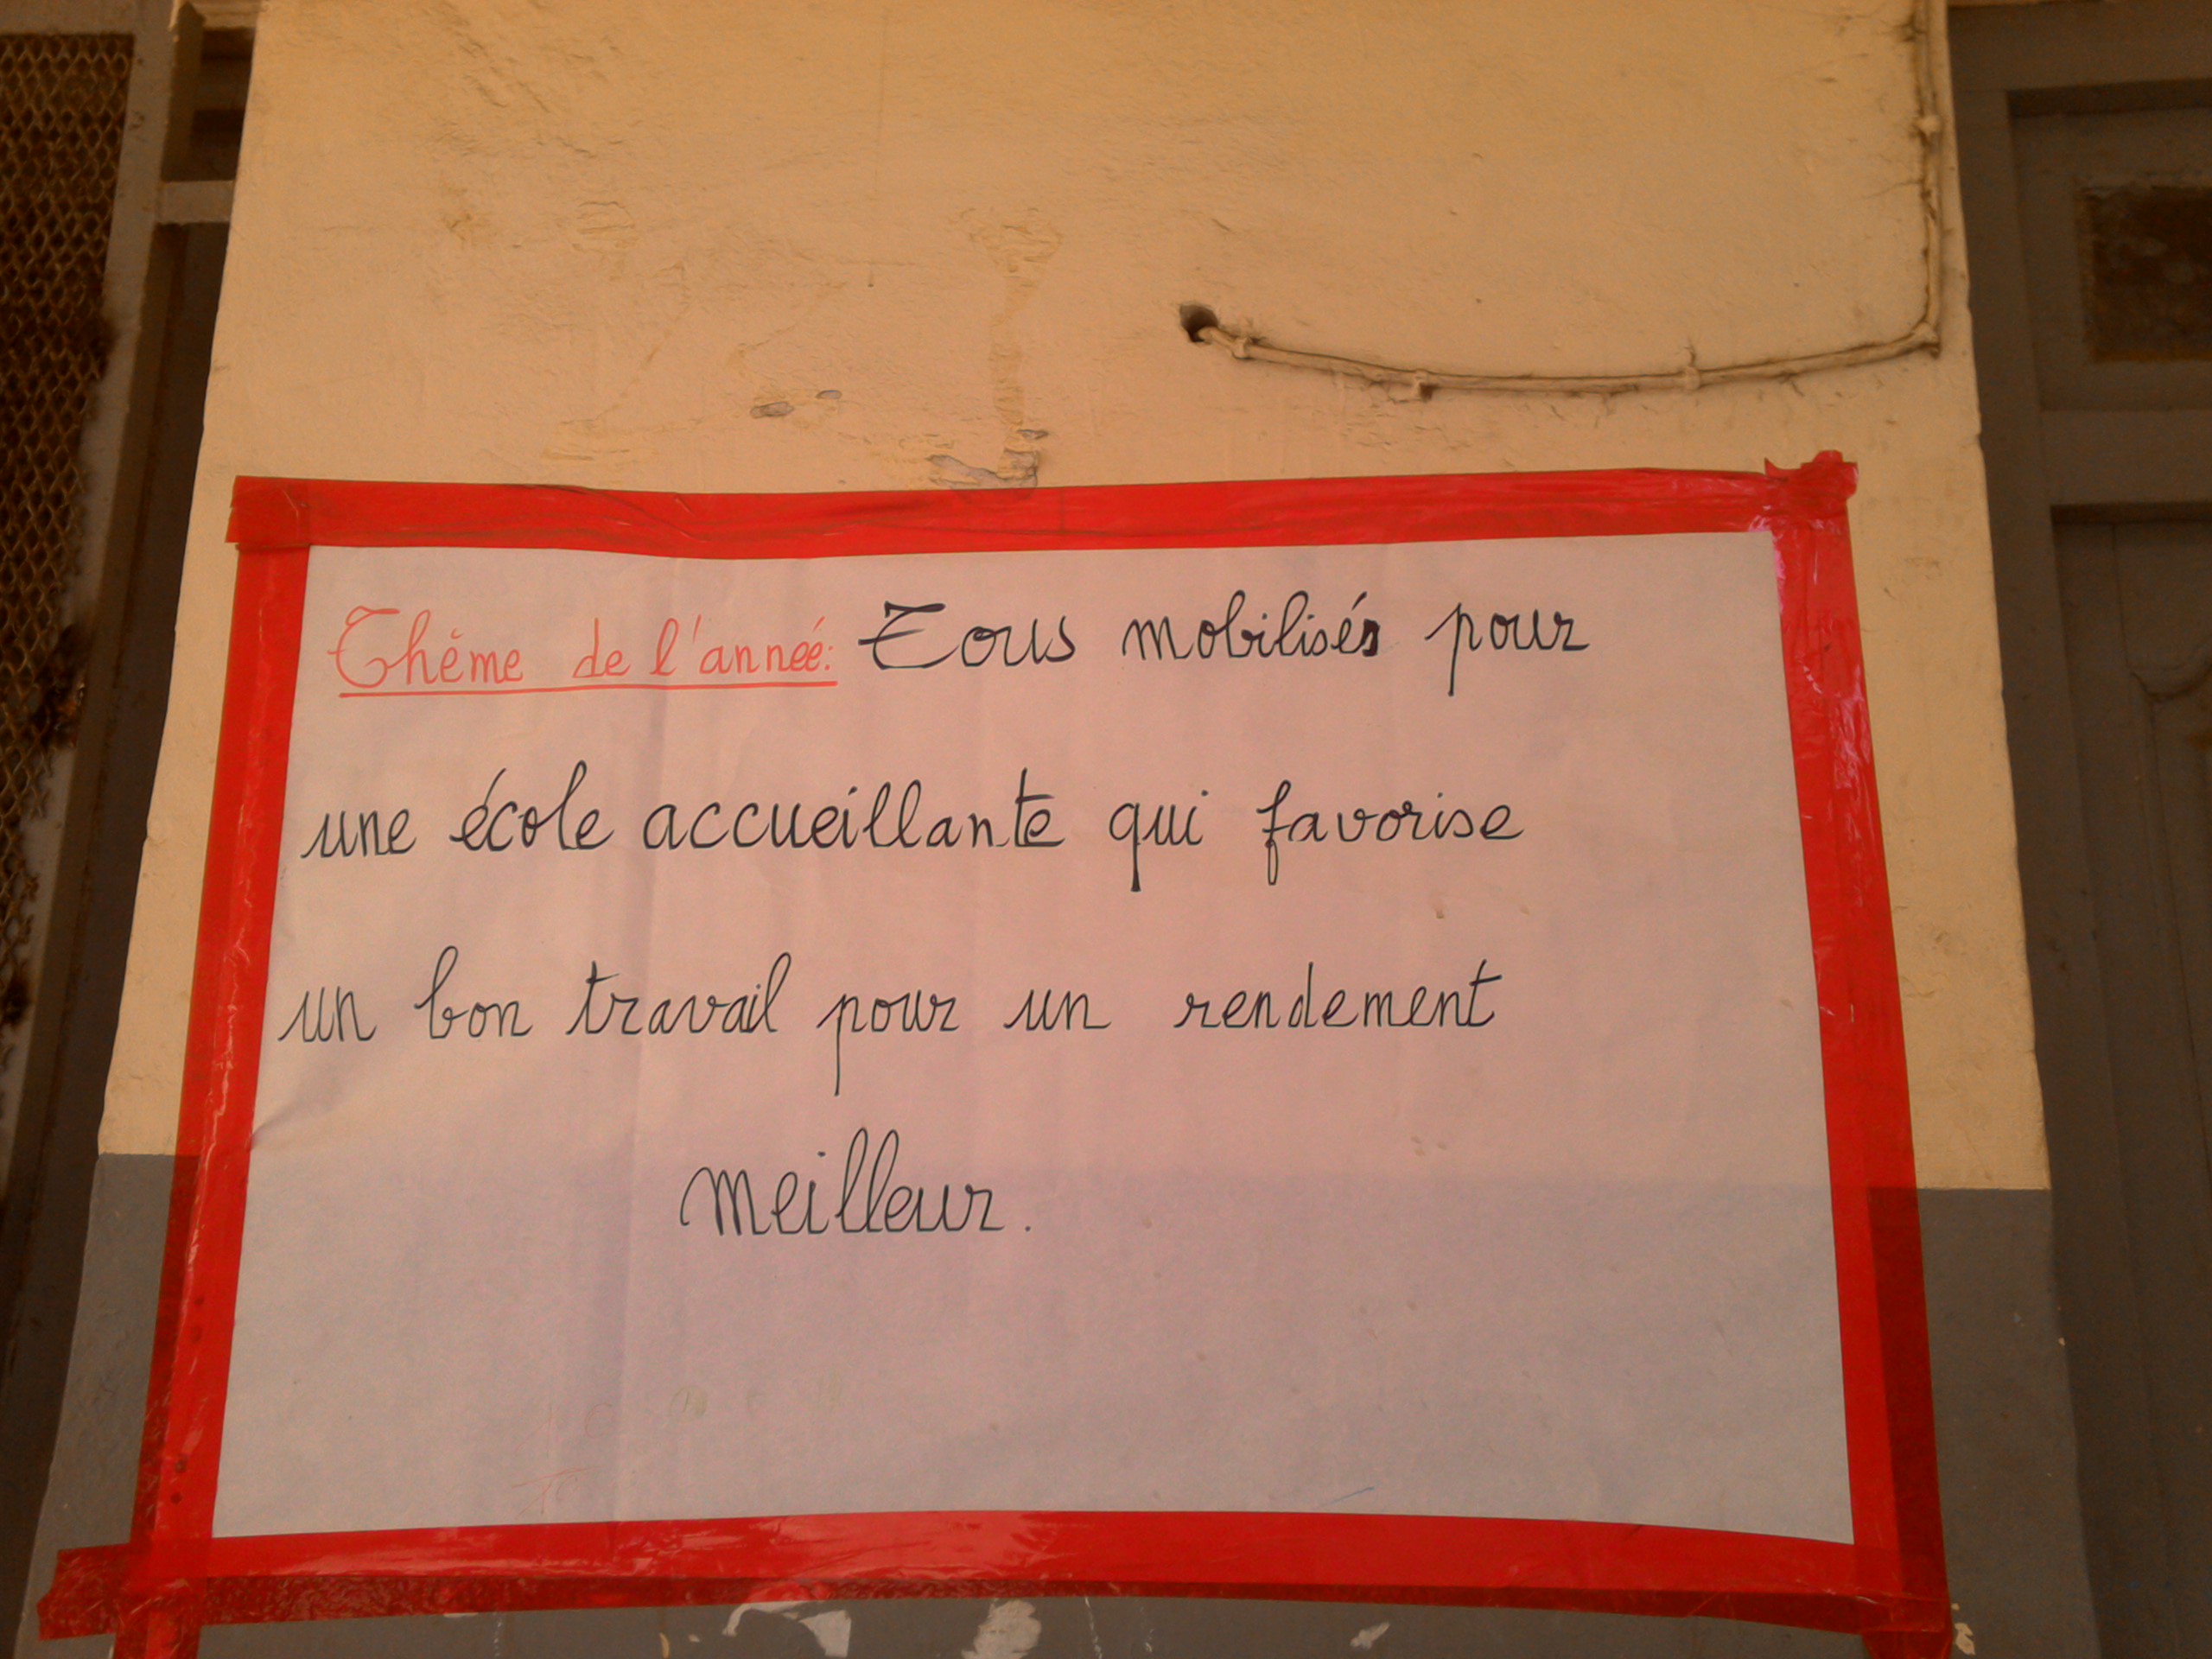 Thème de l'année: Tous mobilisés pour
une école accueillante qui favorise
un bon travail pour un rendement
meilleur.